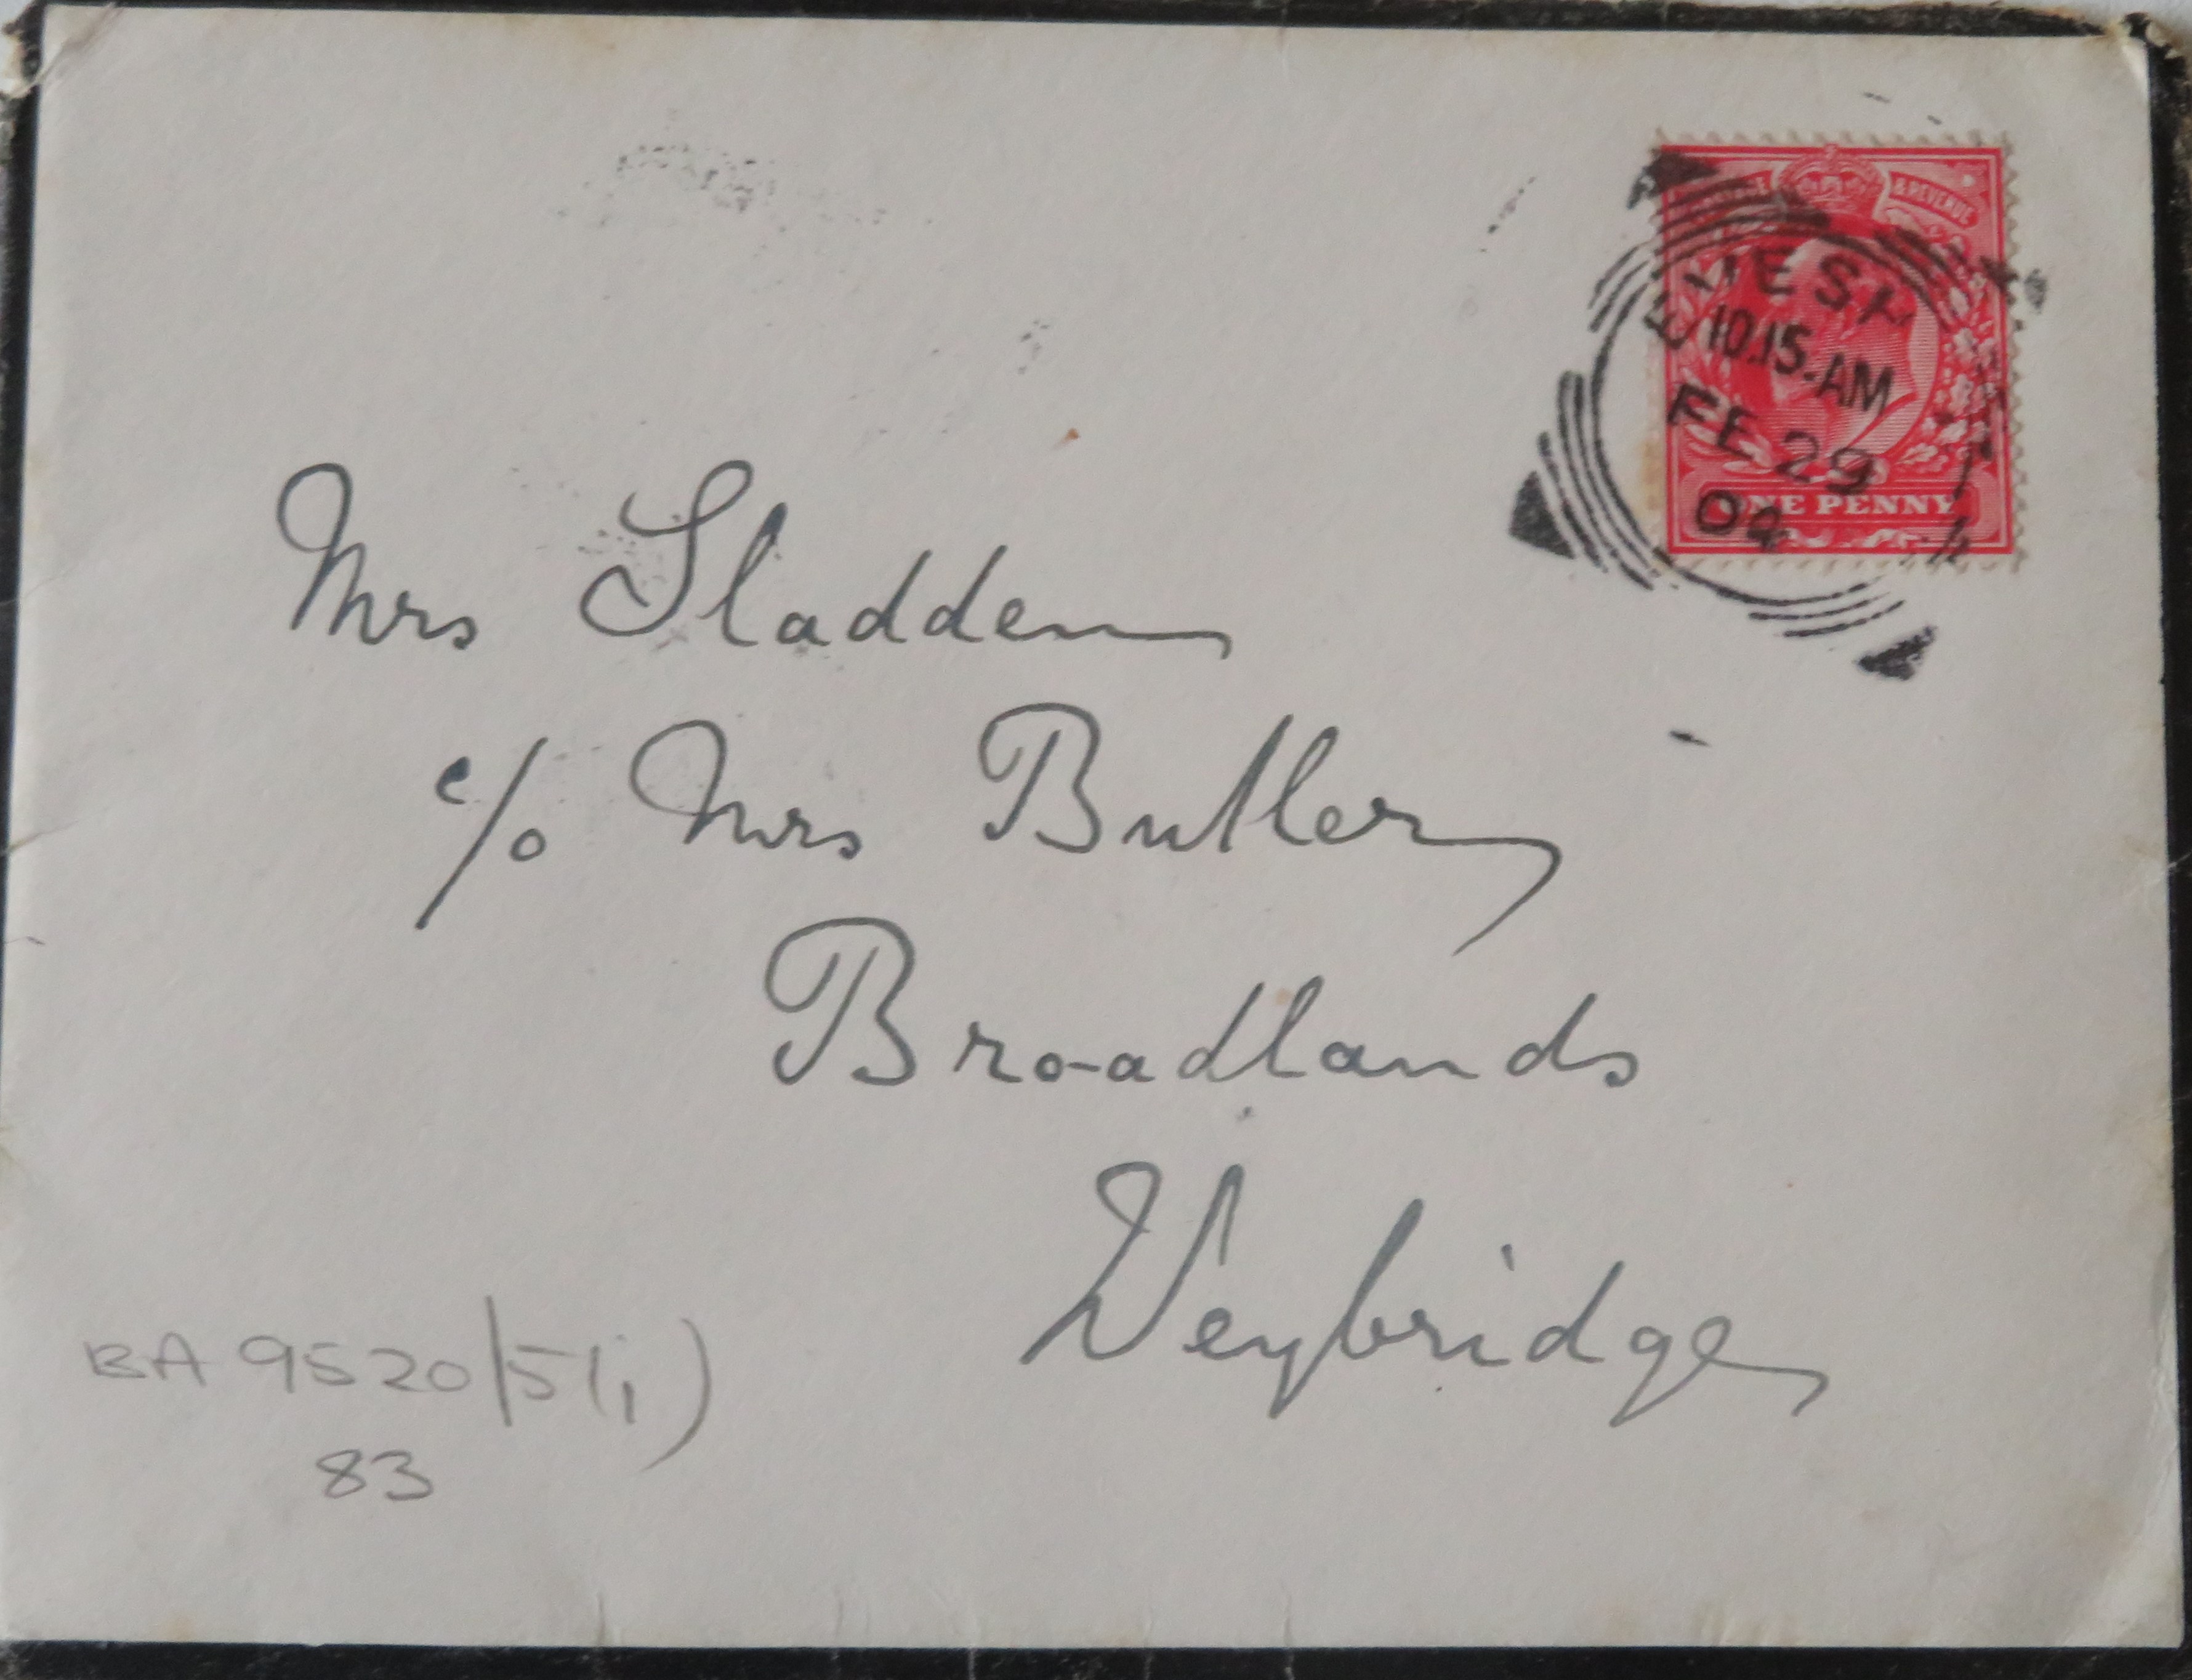 & REVENUE
10.15.AM
FE 29
04
ONE PENNY
Mrs Sladden
c/o Mrs Butler
Broadlands
Weybridge
BA 9520/5(i)
83